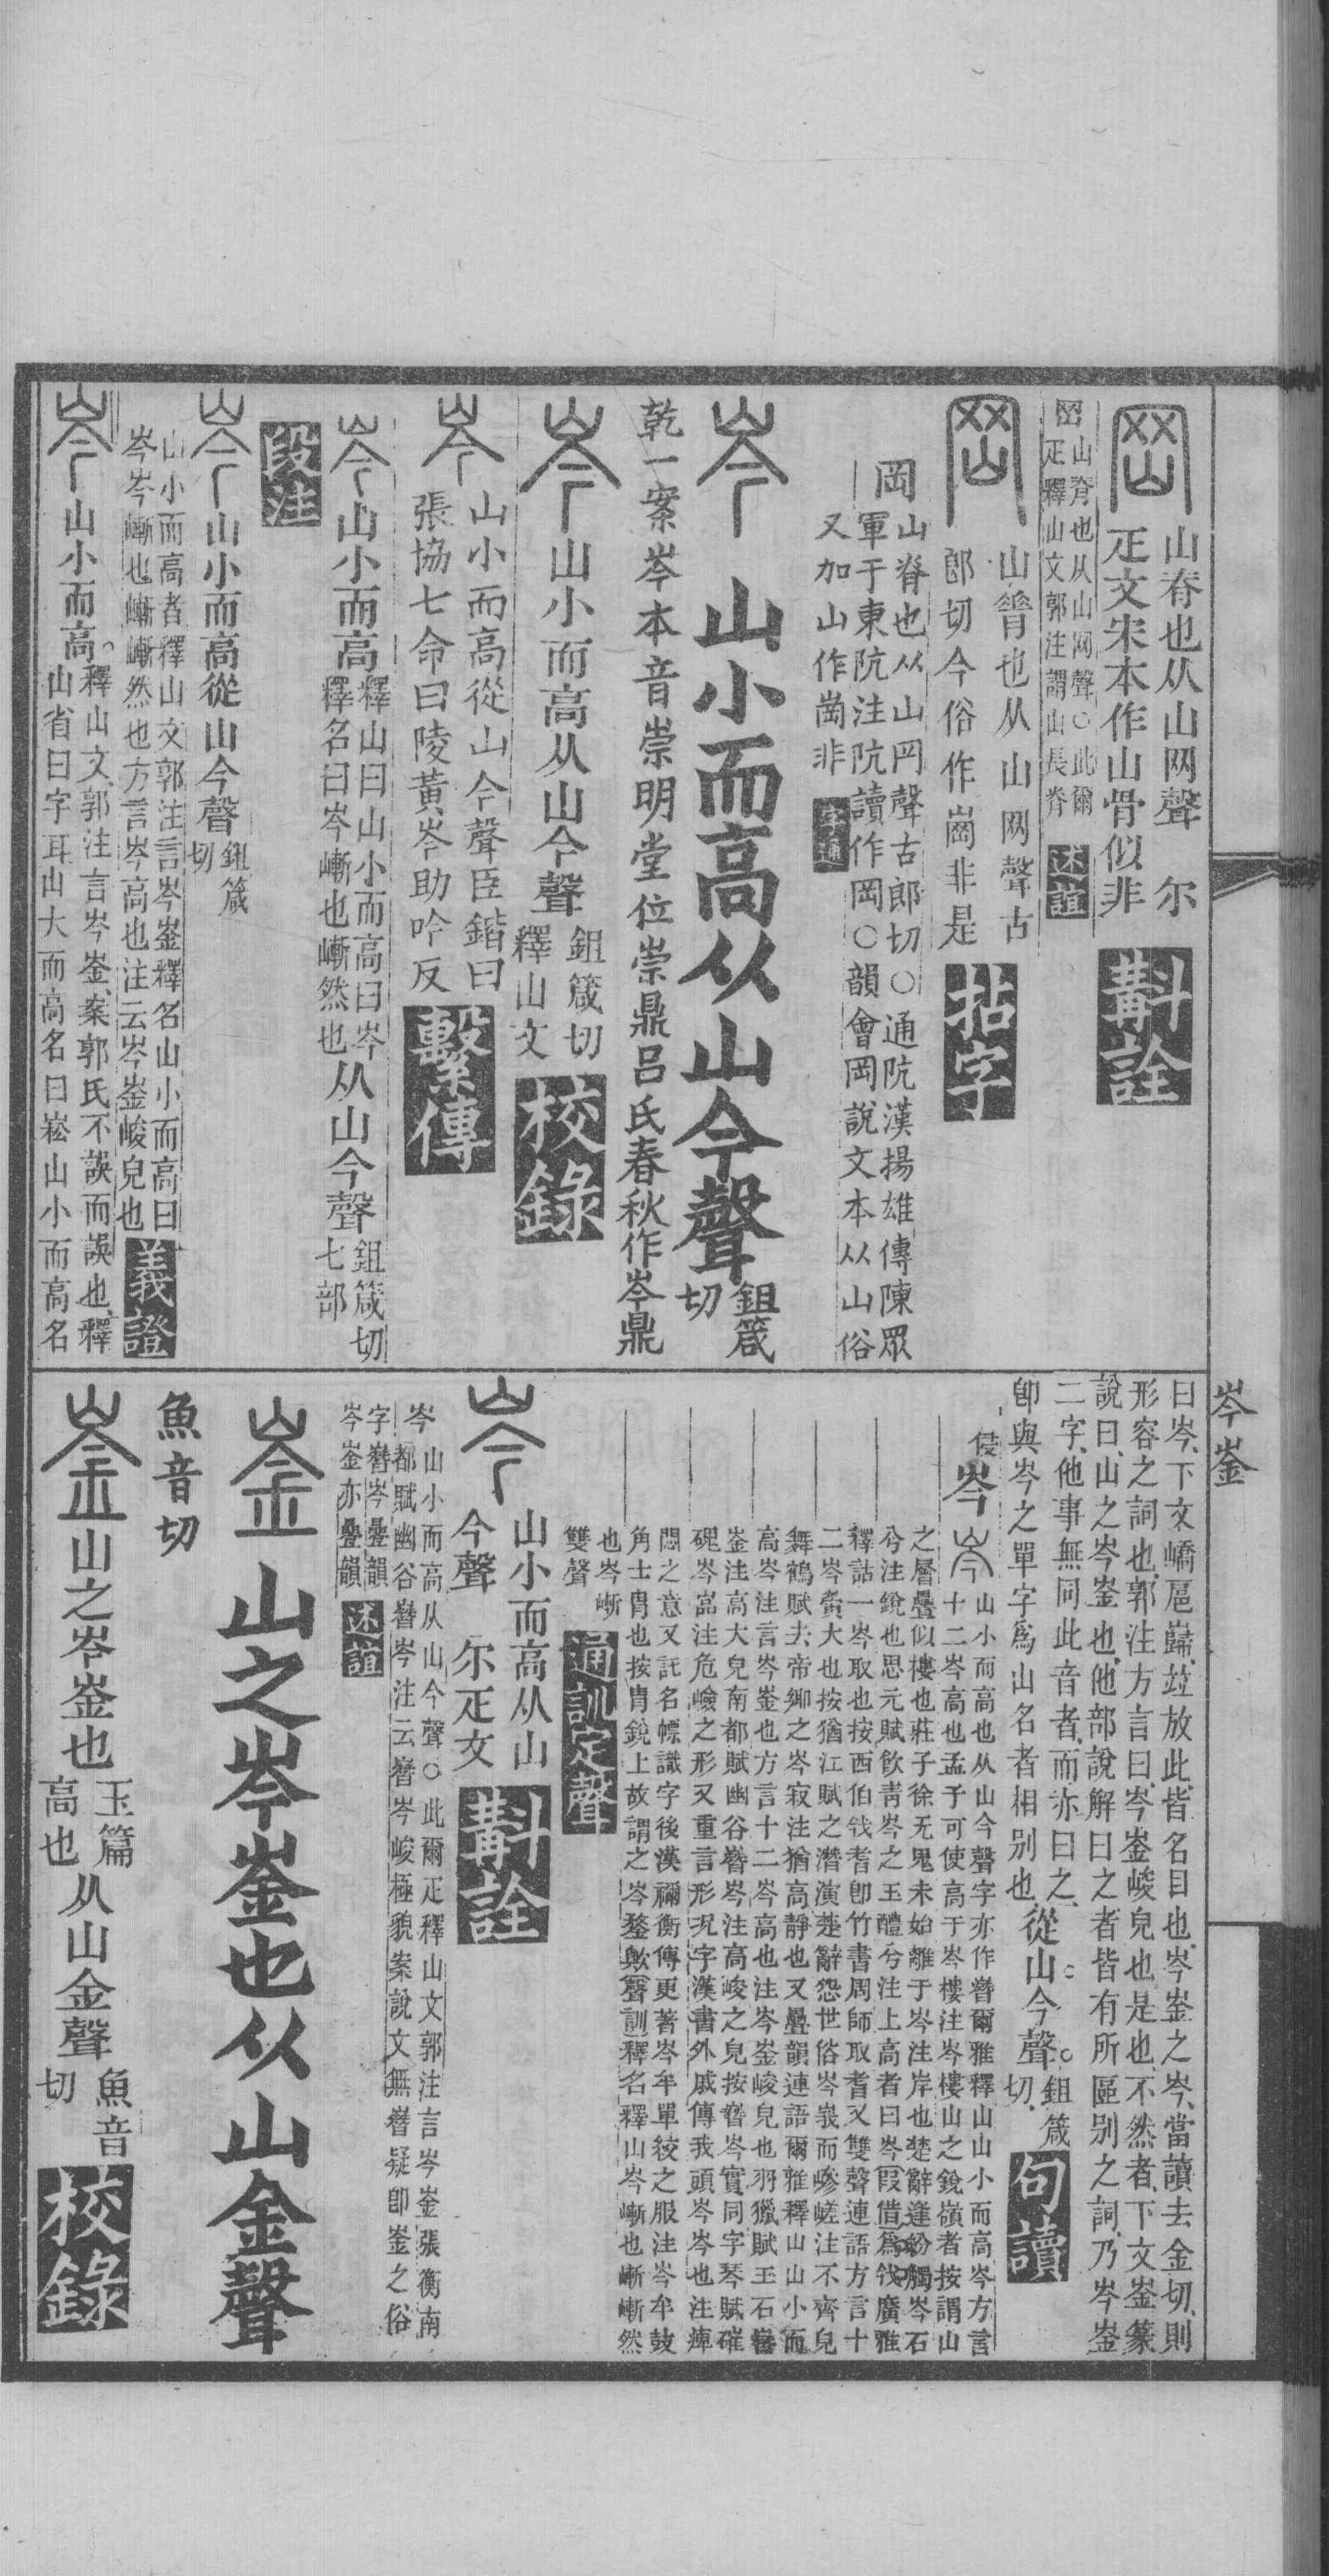 岡 山脊也从山网聲 尔
疋文宋本作山骨似非 斠詮
岡山脊也从山网聲○此爾
疋釋山文郭注謂山長脊 述誼
岡 山脊也从山网聲古
郎切今俗作崗非是 拈字
岡山脊也从山冈聲古郎切○通阬漢揚雄傳陳眾
軍于東阬注阬讀作岡○韻會岡說文本从山俗
又加山作崗非
岑 山小而高从山今聲 鉏箴
切
乾一案岑本音崇明堂位崇鼎呂氏春秋作岑鼎
岑 山小而高从山今聲 鉏箴切
釋山文 校錄
岑 山小而高從山今聲臣鍇曰
張協七命曰陵黃岑助吟反 繫傳
岑 山小而高 釋山曰山小而高曰岑
釋名曰岑嶃也嶃然也 从山今聲 鉏箴切
七部
段注
岑 山小而高從山今聲 鉏箴
切
山小而高者釋山文郭注言岑崟釋名山小而高曰
岑岑嶃也嶃嶃然也方言岑高也注云岑崟峻皃也 義證
岑 山小而高 釋山文郭注言岑崟案郭氏不誤而誤也釋
山省曰字耳山大而高名曰崧山小而高名
岑崟
曰岑下文嶠扈巋竝放此皆名目也岑崟之岑當讀去金切則
形容之詞也郭注方言曰岑崟峻皃也是也不然者下文崟篆
說曰山之岑崟也他部說解曰之者皆有所區別之詞乃岑崟
二字他事無同此音者而亦曰之
卽與岑之單字爲山名者相別也 從山今聲 鉏箴
切 句讀
岑 岑 山小而高也从山今聲字亦作䃡爾雅釋山山小而高岑方言
十二岑高也孟子可使高于岑樓注岑樓山之銳嶺者按謂山
之層疊似樓也莊子徐无鬼未始離于岑注岸也楚辭逢紛觸岑石
兮注銳也思元賦飲青岑之玉醴兮注上高者曰岑叚借爲戗廣雅
釋詁一岑取也按西伯戗耆卽竹書周師取耆又雙聲連語方言十
二岑夤大也按猶江賦之潛演楚辭怨世俗岑峩而嵾嵯注不齊皃
舞鶴賦去帝鄉之岑寂注猶高靜也又疊韻連語爾雅釋山山小而
高岑注言岑崟也方言十二岑高也注岑崟峻皃也羽獵賦玉石嶜
崟注高大皃南都賦幽谷嶜岑注高峻之皃按嶜岑實同字琴賦確
硊岑嵓注危嶮之形又重言形況字漢書外戚傳我頭岑岑也注痺
悶之意又託名幖識字後漢禰衡傳更著岑牟單絞之服注岑牟鼓
角士冑也按冑銳上故謂之岑鍪歟聲訓釋名釋山岑嶃也嶃嶃然
也岑嶃
雙聲 通訓定聲
岑 山小而高从山
今聲 尔疋文 斠詮
岑山小而高从山今聲○此爾疋釋山文郭注言岑崟張衡南
都賦幽谷嶜岑注云嶜岑峻極貌案說文無嶜疑卽崟之俗
字嶜岑疊韻
岑崟亦疊韻 述誼
崟 山之岑崟也从山金聲
魚音切
崟 山之岑崟也 玉篇
高也 从山金聲 魚音
切 校錄